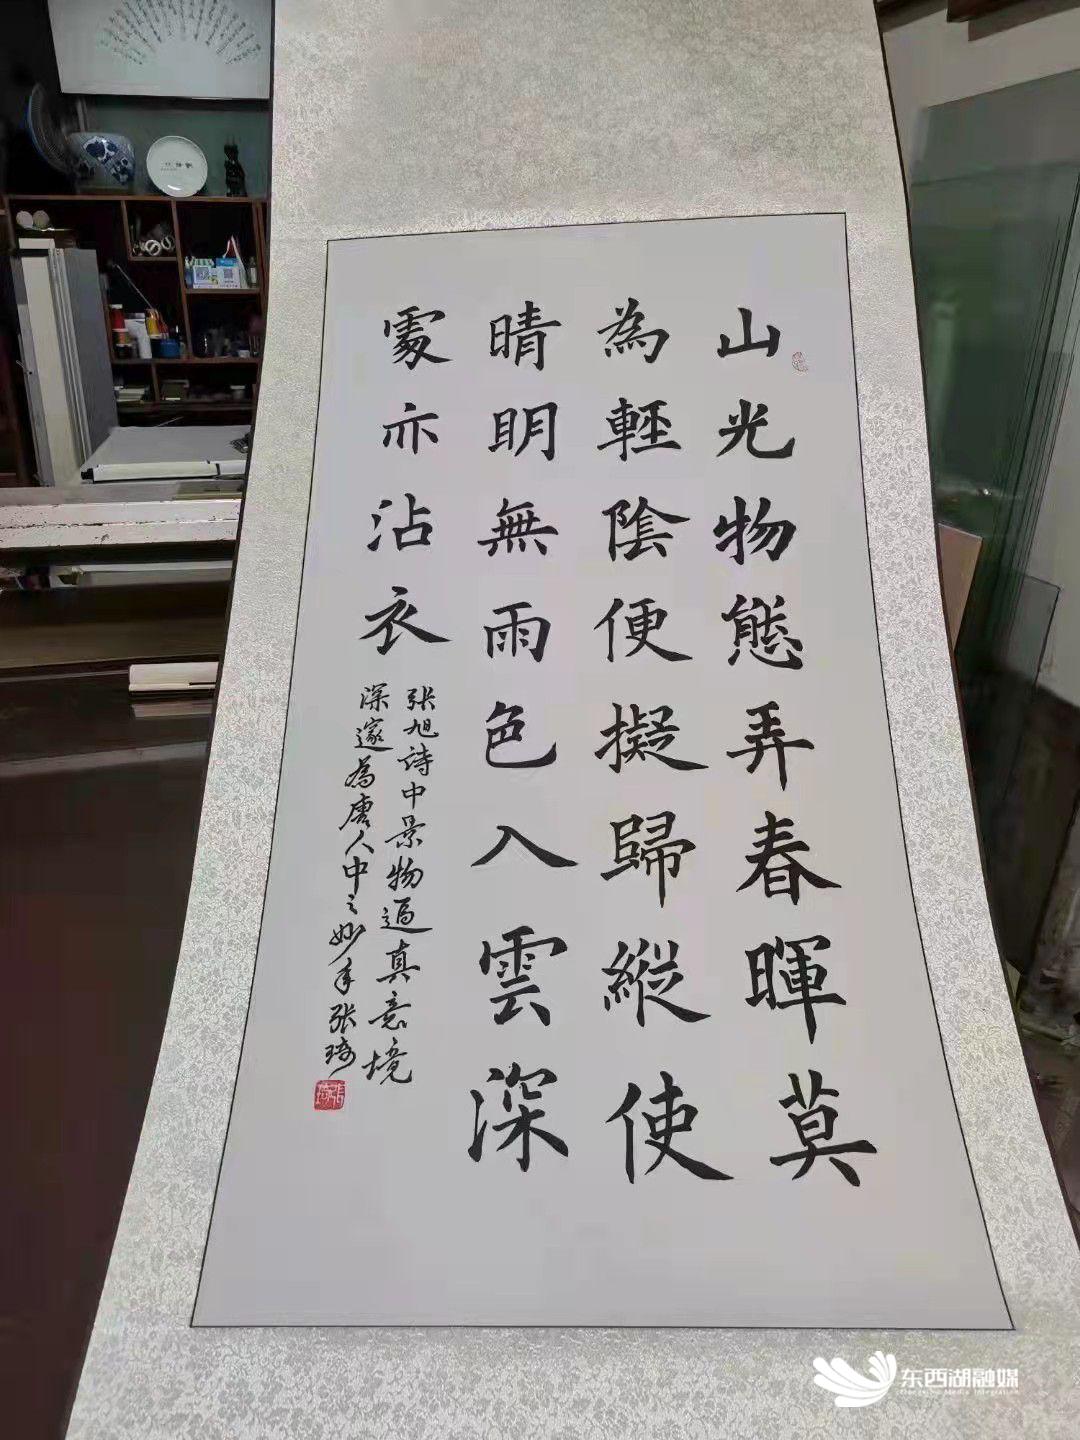 山光物態弄春暉莫
為輕陰便擬歸縱使
晴明無雨色入雲深
處亦沾衣
张旭诗中景物逼真意境
深邃為唐人中之妙手张琦
东西湖融媒